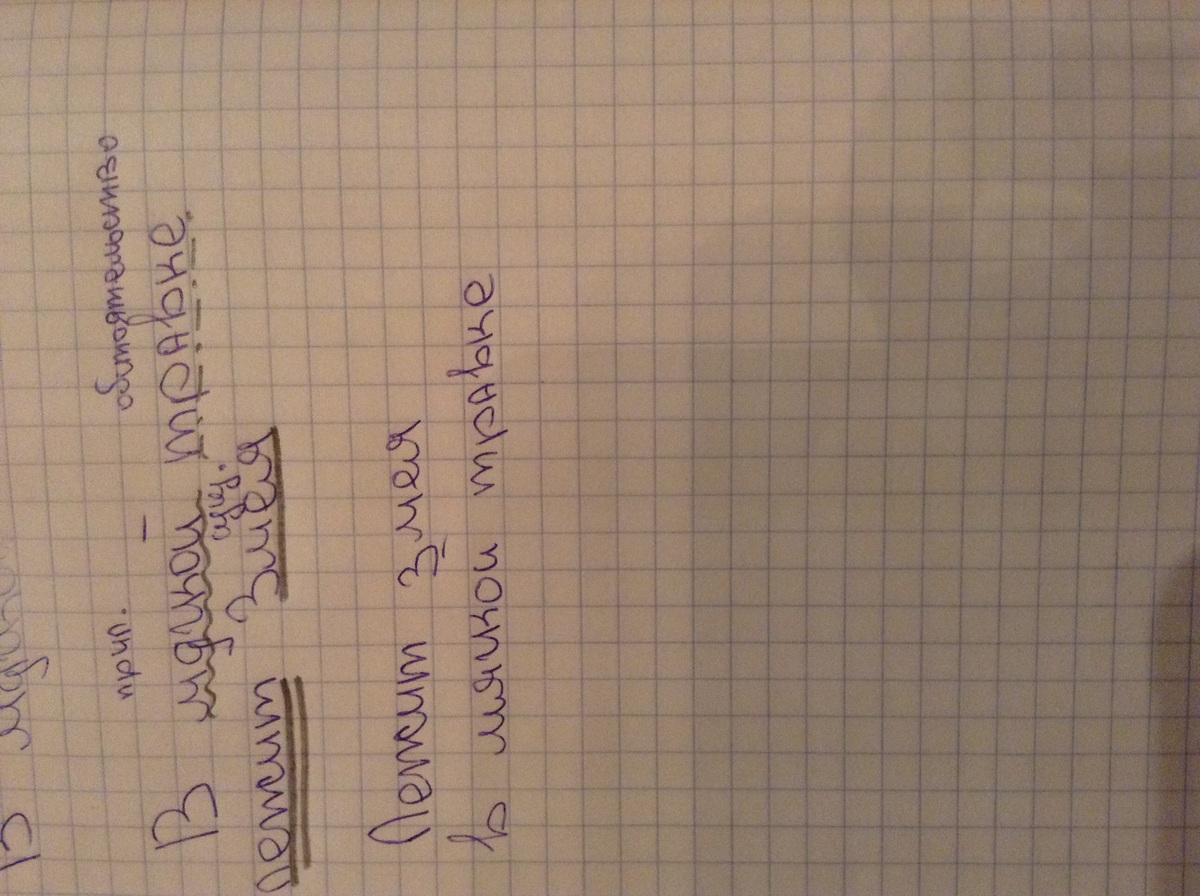 В
прил. обстоятельство
В мягкой травке
сущ.
лежит Змея
Лежит Змея
в мягкои травке